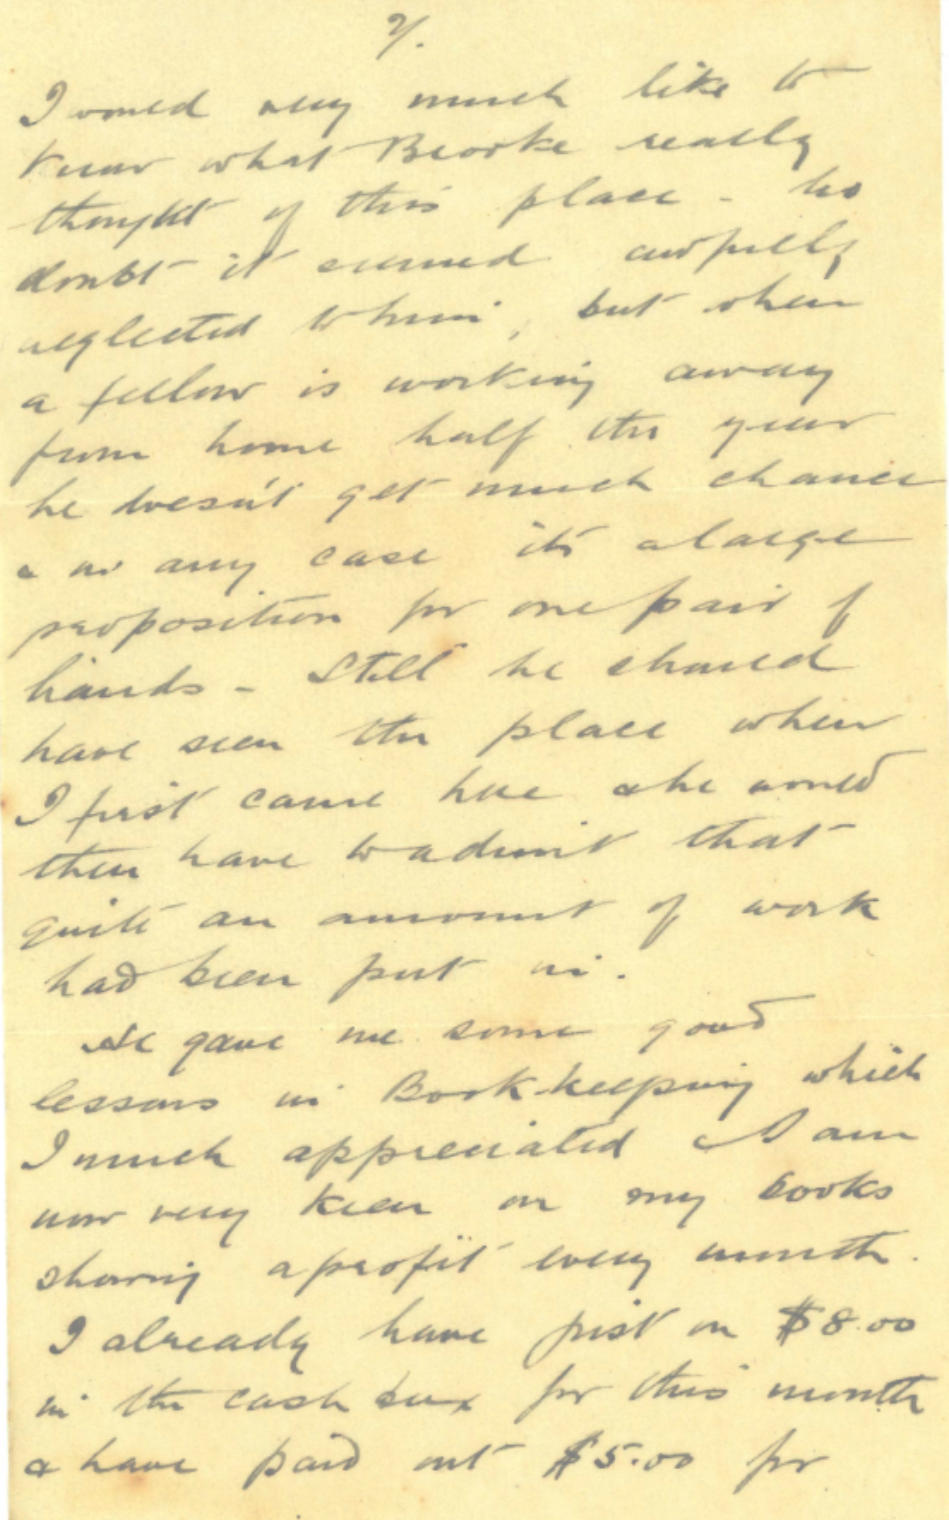 2/.
I would very much like to
know what Brooke really
thought of this place - No
doubt it seemed awfully
neglected to him, but when
a fellow is working away
from home half the year
he doesn't get much chance
& in any case its a large
proposition for one pair of
hands - Still he should
have seen the place when
I first came here & he would
then have to admit that
quite an amount of work
had been put in.
He gave me some good
lessons in Book-keeping which
I much appreciated & I am
now very keen on my books
showing a profit every month.
I already have just on $8.00
in the cash box for this month
& have paid out $5.00 for